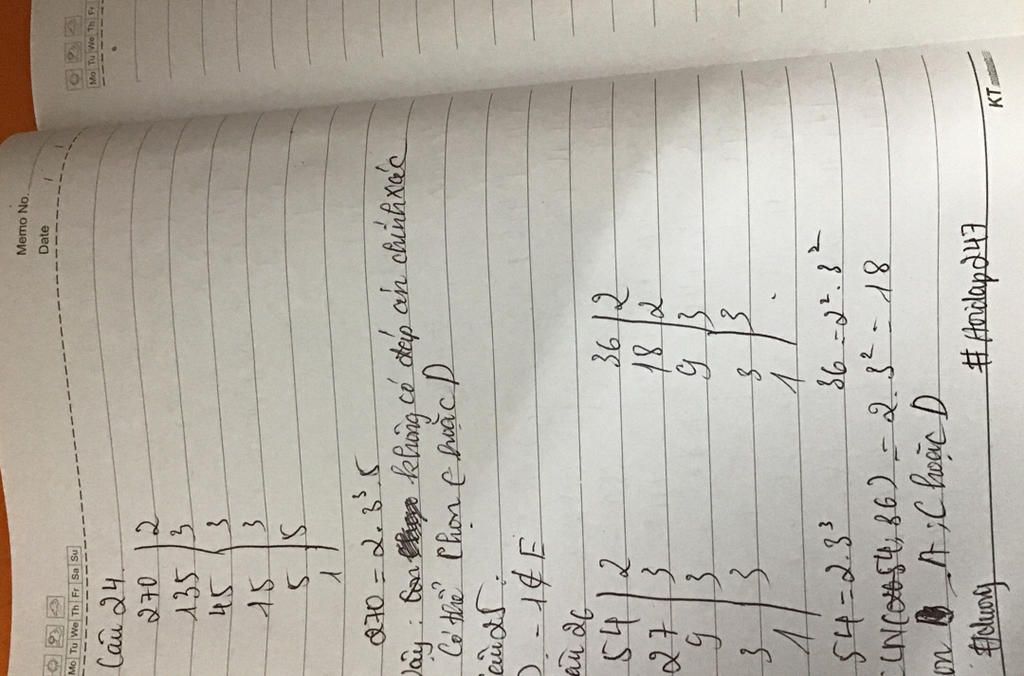 Memo No.
Date
Mo Tu We Th Fr Sa Su
Mo Tu We Th Fr
Câu 24
270 | 2
135 | 3
45 | 3
15 | 3
5 | 5
1
270 = 2 . 3³ . 5
không có đáp án chính xác
Có thể chọn C hoặc D
25:
-1 ∉ E
26
54 | 2 36 | 2
27 | 3 18 | 2
9 | 3 9 | 3
3 | 3 3 | 3
1 1
54 = 2 . 3³ 36 = 2² . 3²
CLN(54; 36) = 2 . 3² = 18
A ; C hoặc D
#chuong #Hoidap247
KT